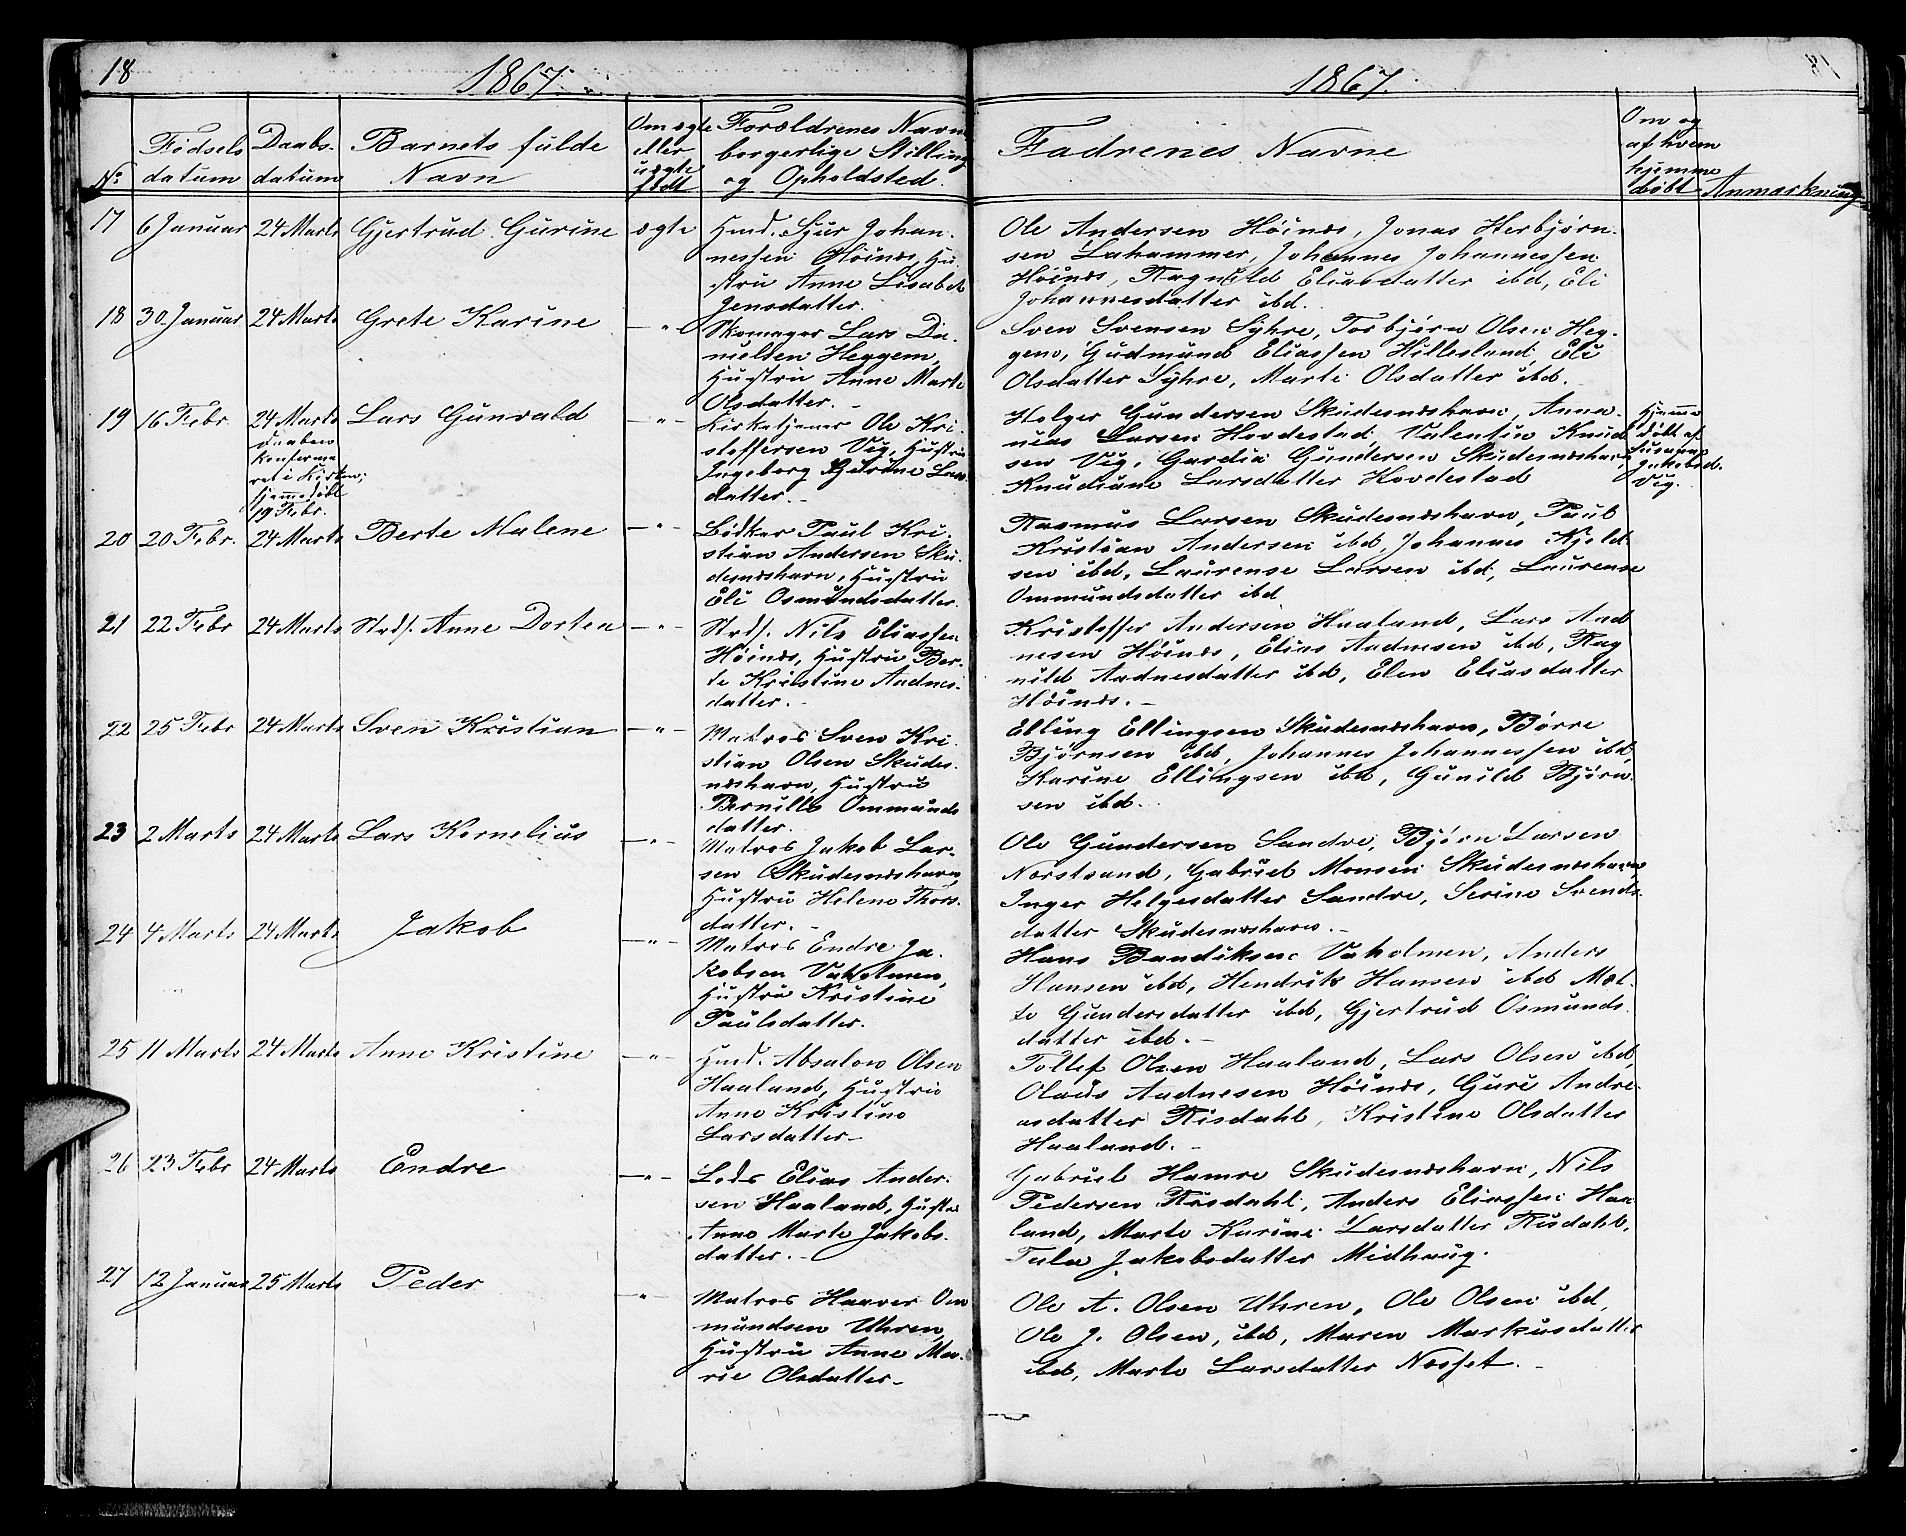 18
1867.
1867.
No
Fødsels datum
Daabs- datum
Barnets fulde Navn
Om ægte eller uægte født
Forældrenes Navn borgerlige Stilling og Opholdsted.
Fadrenes Navne
Om og af hvem hjemme døbt
Anmærkning
17 6 Januar 24 Marts Gjertrud Gurine ægte
Hmd. Sjur Johan-
nessen Høinæs, Hu-
stru Anne Lisabet
Jensdatter.
Ole Andersen Høinæs, Jonas Herbjørn-
sen Lahammer, Johannes Johannessen
Høinæs, Ragnild Eliasdatter ibd, Eli
Johannesdatter ibd.
18 30 Januar 24 Marts Grete Karine -"-
Skomager Lars Da-
nielsen Heggem,
Hustru Anne Marte
Olsdatter. -
Sven Svensen Syhre, Torbjørn Olsen Heg-
gem, Gudmund Eliassen Hillesland, Eli
Olsdatter Syhre, Marte Olsdatter ibd.
19 16 Febr. 24 Marts Lars Gunvald -"-
Daaben
konferme
ret i Kirken;
hjemmedøbt
19 Febr.
Kirketjener Ole Kri-
stoffersen Vig, Hustru
Ingeborg Gurine Lars
datter. -
Holger Gundersen Skudesnæshavn, Anna-
nias Larsen Hovdestad, Valentin Knud
sen Vig, Gardia Gundersen Skudesnæshavn,
Knudiane Larsdatter Hovdestad
Hjemme
døbt af
Susanna
Jakobsd.
Vig.
20 20 Febr. 24 Marts Berte Malene -"-
Bødker Paul Kri-
stian Andersen Sku-
desnæshavn, Hustru
Eli Osmundsdatter.
Rasmus Larsen Skudesnæshavn, Paul
Kristian Andersen ibd, Johannes Kjeld-
sen ibd, Laurense Larsen ibd, Laurense
Ommundsdatter ibd
21 22 Febr 24 Marts Strds. Anne Dorten -"-
Strds. Nils Eliassen
Høinæs, Hustru Ber-
te Kristine Aadnes-
datter. -
Kristoffer Andersen Haaland, Lars Aad
nesen Høinæs, Elias Aadnesen ibd, Rag
nild Aadnesdatter ibd, Elen Eliasdatter
Høinæs. -
22 25 Febr 24 Marts Sven Kristian -"-
Matros Sven Kri-
stian Olsen Skudes-
næshavn, Hustru
Pernille Ommunds
datter.
Elling Ellingsen Skudesnæshavn, Børre
Bjørnsen ibd, Johannes Johannessen ibd,
Karine Ellingsen ibd, Gunild Bjørn-
sen ibd.
23 2 Marts 24 Marts Lars Kornelius -"-
Matros Jakob Lar-
sen Skudesnæshavn,
Hustru Helene Thors-
datter. -
Ole Gundersen Sandve, Bjørn Larsen
Norstrand, Gabriel Monsen Skudesnæshavn
Inger Helgesdatter Sandve, Serine Svends-
datter Skudesnæshavn. -
24 4 Marts 24 Marts Jakob -"-
Matros Endre Ja-
kobsen Vaholmen,
Hustru Kristine
Paulsdatter.
Hans Bendiksen Vaholmen, Anders
Hansen ibd, Hendrik Hansen ibd Mal-
le Gundersdatter ibd, Gjertrud Osmunds-
datter ibd. -
25 11 Marts 24 Marts Anne Kristine -"-
Hmd. Absalon Olsen
Haaland, Hustru
Anne Kristine
Larsdatter -
Tollef Olsen Haaland, Lars Olsen ibd,
Olaus Aadnesen Høinæs, Guri Andre-
asdatter Risdahl, Kristine Olsdatter
Haaland. -
26 23 Febr 24 Marts Endre -"-
Lods Elias Ander-
sen Haaland, Hustru
Anne Marte Jakobs-
datter. -
Gabriel Hamre Skudesnæshavn, Nils
Pedersen Risdahl, Anders Eliassen Haa-
land, Marte Karine Larsdatter Risdahl,
Tala Jakobsdatter Midhaug.
27 12 Januar 25 Marts Peder -"-
Matros Haaver Om
mundsen Uhren,
Hustru Anne Ma-
rie Olsdatter -
Ole A. Olsen Uhren, Ole Olsen ibd,
Ole J. Olsen, ibd, Maren Markusdatter
ibd, Marte Larsdatter Næsset. -